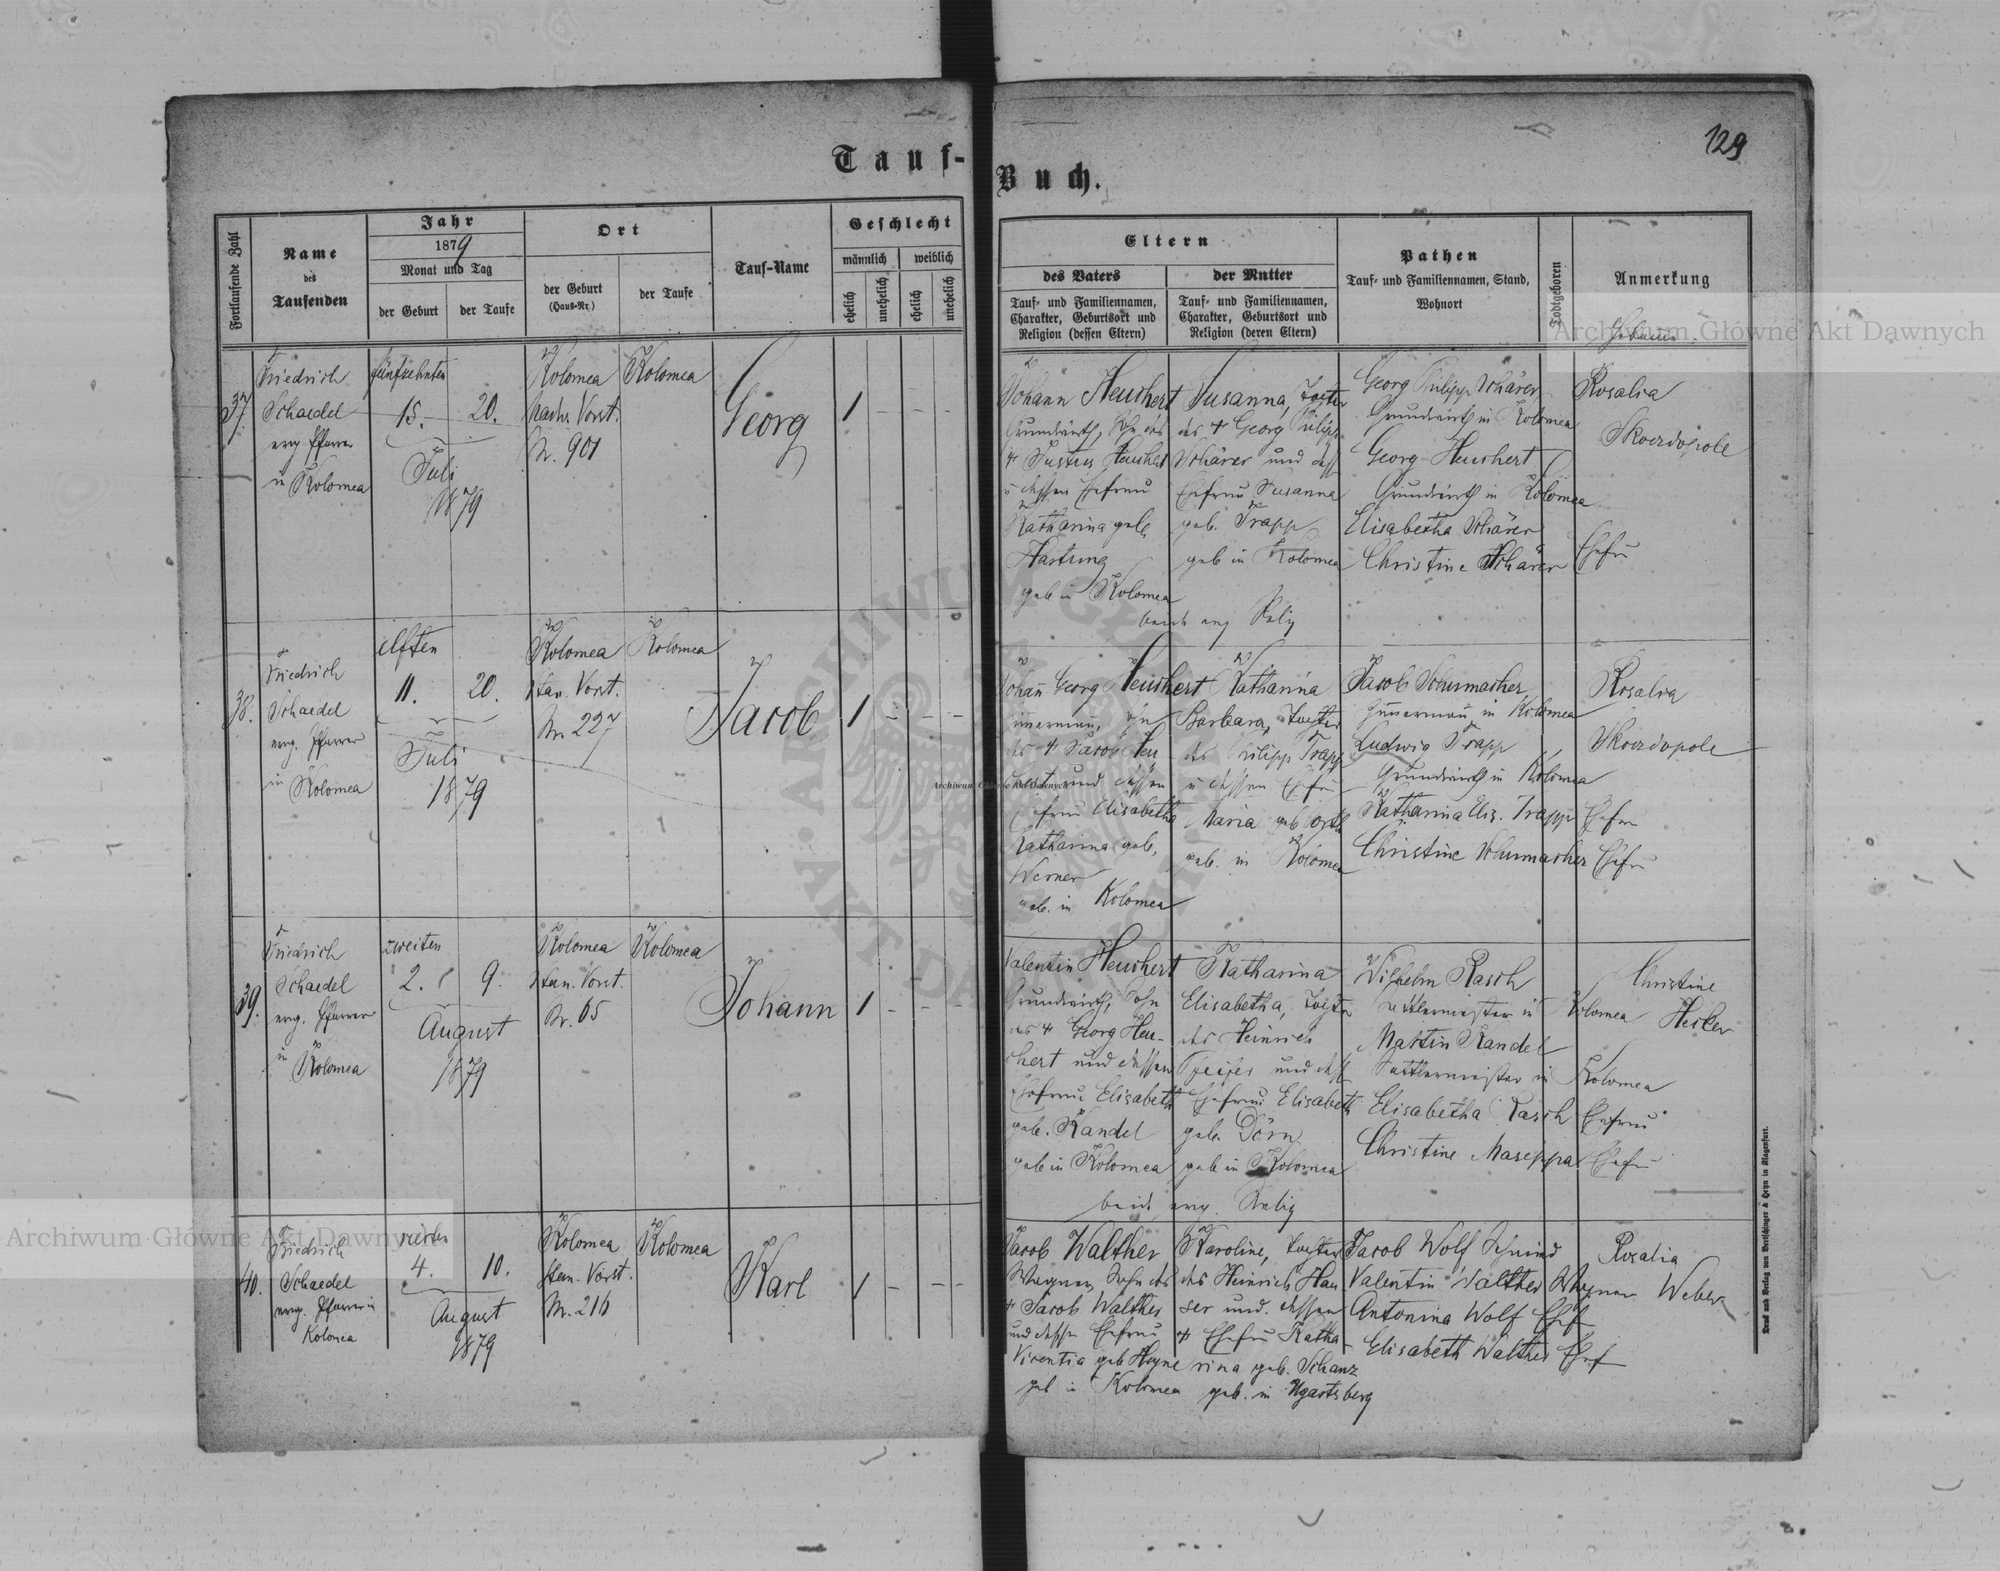 129
Tauf-
Buch.
Fortlaufende Zahl
Name
des
Taufenden
Jahr
1879
Monat und Tag
der Geburt
der Taufe
Ort
der Geburt
(Haus-Nr.)
der Taufe
Tauf-Name
Geschlecht
männlich
weiblich
ehelich
unehelich
ehelich
unehelich
Eltern
des Vaters
Tauf- und Familiennamen,
Charakter, Geburtsort und
Religion (dessen Eltern)
der Mutter
Tauf- und Familiennamen,
Charakter, Geburtsort und
Religion (deren Eltern)
Pathen
Tauf- und Familiennamen, Stand,
Wohnort
Todtgeboren
Anmerkung
37.
Friedrich
Schaedel
evg Pfarrer
in Kolomea
fünfzehnten
15.
20.
Juli
1879
Kolomea
Vorst.
Nr. 901
Kolomea
Georg
1 - - -
Johann Heuchert
Grundwirth, Sohn des
+ Justus Heuchert
u dessen Ehefrau
Katharina geb.
Hartung
geb in Kolomea
Susanna, Tochter
des + Georg Philipp
Schärer und dess
Ehefrau Susanna
geb. Trapp
geb in Kolomea
beide evg Relig
Georg Philipp Schärer
Grundwirth in Kolomea
Georg Heuchert
Grundwirth in Kolomea
Elisabetha Schärer
Christine Schärer Ehefr
Rosalia
Skwirdopole
38.
Friedrich
Schaedel
evg. Pfarrer
in Kolomea
elften
11.
20.
Juli
1879
Kolomea
Vorst.
Nr. 227
Kolomea
Jacob
1 - - -
Johann Georg Heuchert
des + Jacob Heu
chert und dessen
Ehefrau Elisabetha
Katharina geb.
Werner
geb. in Kolomea
Katharina
Barbara, Tochter
des Philipp Trapp
u dessen Ehefr
Maria geb Orth
geb. in Kolomea
Jacob Schumacher
Zimmermann in Kolomea
Ludwig Trapp
Grundwirth in Kolomea
Katharina Elis. Trapp Ehefr
Christine Schumacher Ehefr
Rosalia
Skwirdopole
39.
Friedrich
Schaedel
evg. Pfarrer
in Kolomea
zweiten
2.
9.
August
1879
Kolomea
Vorst.
Nr. 65
Kolomea
Johann
1 - - -
Valentin Heuchert
Grundwirth, Sohn
des + Georg Heu-
chert und dessen
Ehefrau Elisabeth
geb. Kandel
geb in Kolomea
Katharina
Elisabetha, Tochter
des Heinrich
und dess
Ehefrau Elisabeth
geb. Dörn
geb in Kolomea
beide evg. Relig
Wilhelm Rasch
Sattlermeister in Kolomea
Martin Kandel
Sattlermeister in Kolomea
Elisabetha Rasch Ehefrau
Christine Maseppa Ehefr
Christine
Heiler
40.
Friedrich
Schaedel
evg. Pfarrer in
Kolomea
vierten
4.
10.
August
1879
Kolomea
Vorst.
Nr. 216
Kolomea
Karl
1 - - -
Jacob Walther
Wagner, Sohn des
+ Jacob Walther
und dessen Ehefrau
geb
geb in Kolomea
Karoline, Tochter
des Heinrich Hau
ser und dessen
+ Ehefr Katha
rina geb. Schanz
geb. in Ugartsberg
Jacob Wolf Schmied
Valentin Walther Wagner
Antonina Wolf Ehef
Elisabeth Walther Ehef
Rosalia
Weber
Druck und Verlag von Bertschinger & Heyn in Klagenfurt.
Archiwum Główne Akt Dawnych
Archiwum Główne Akt Dawnych
Archiwum Główne Akt Dawnych